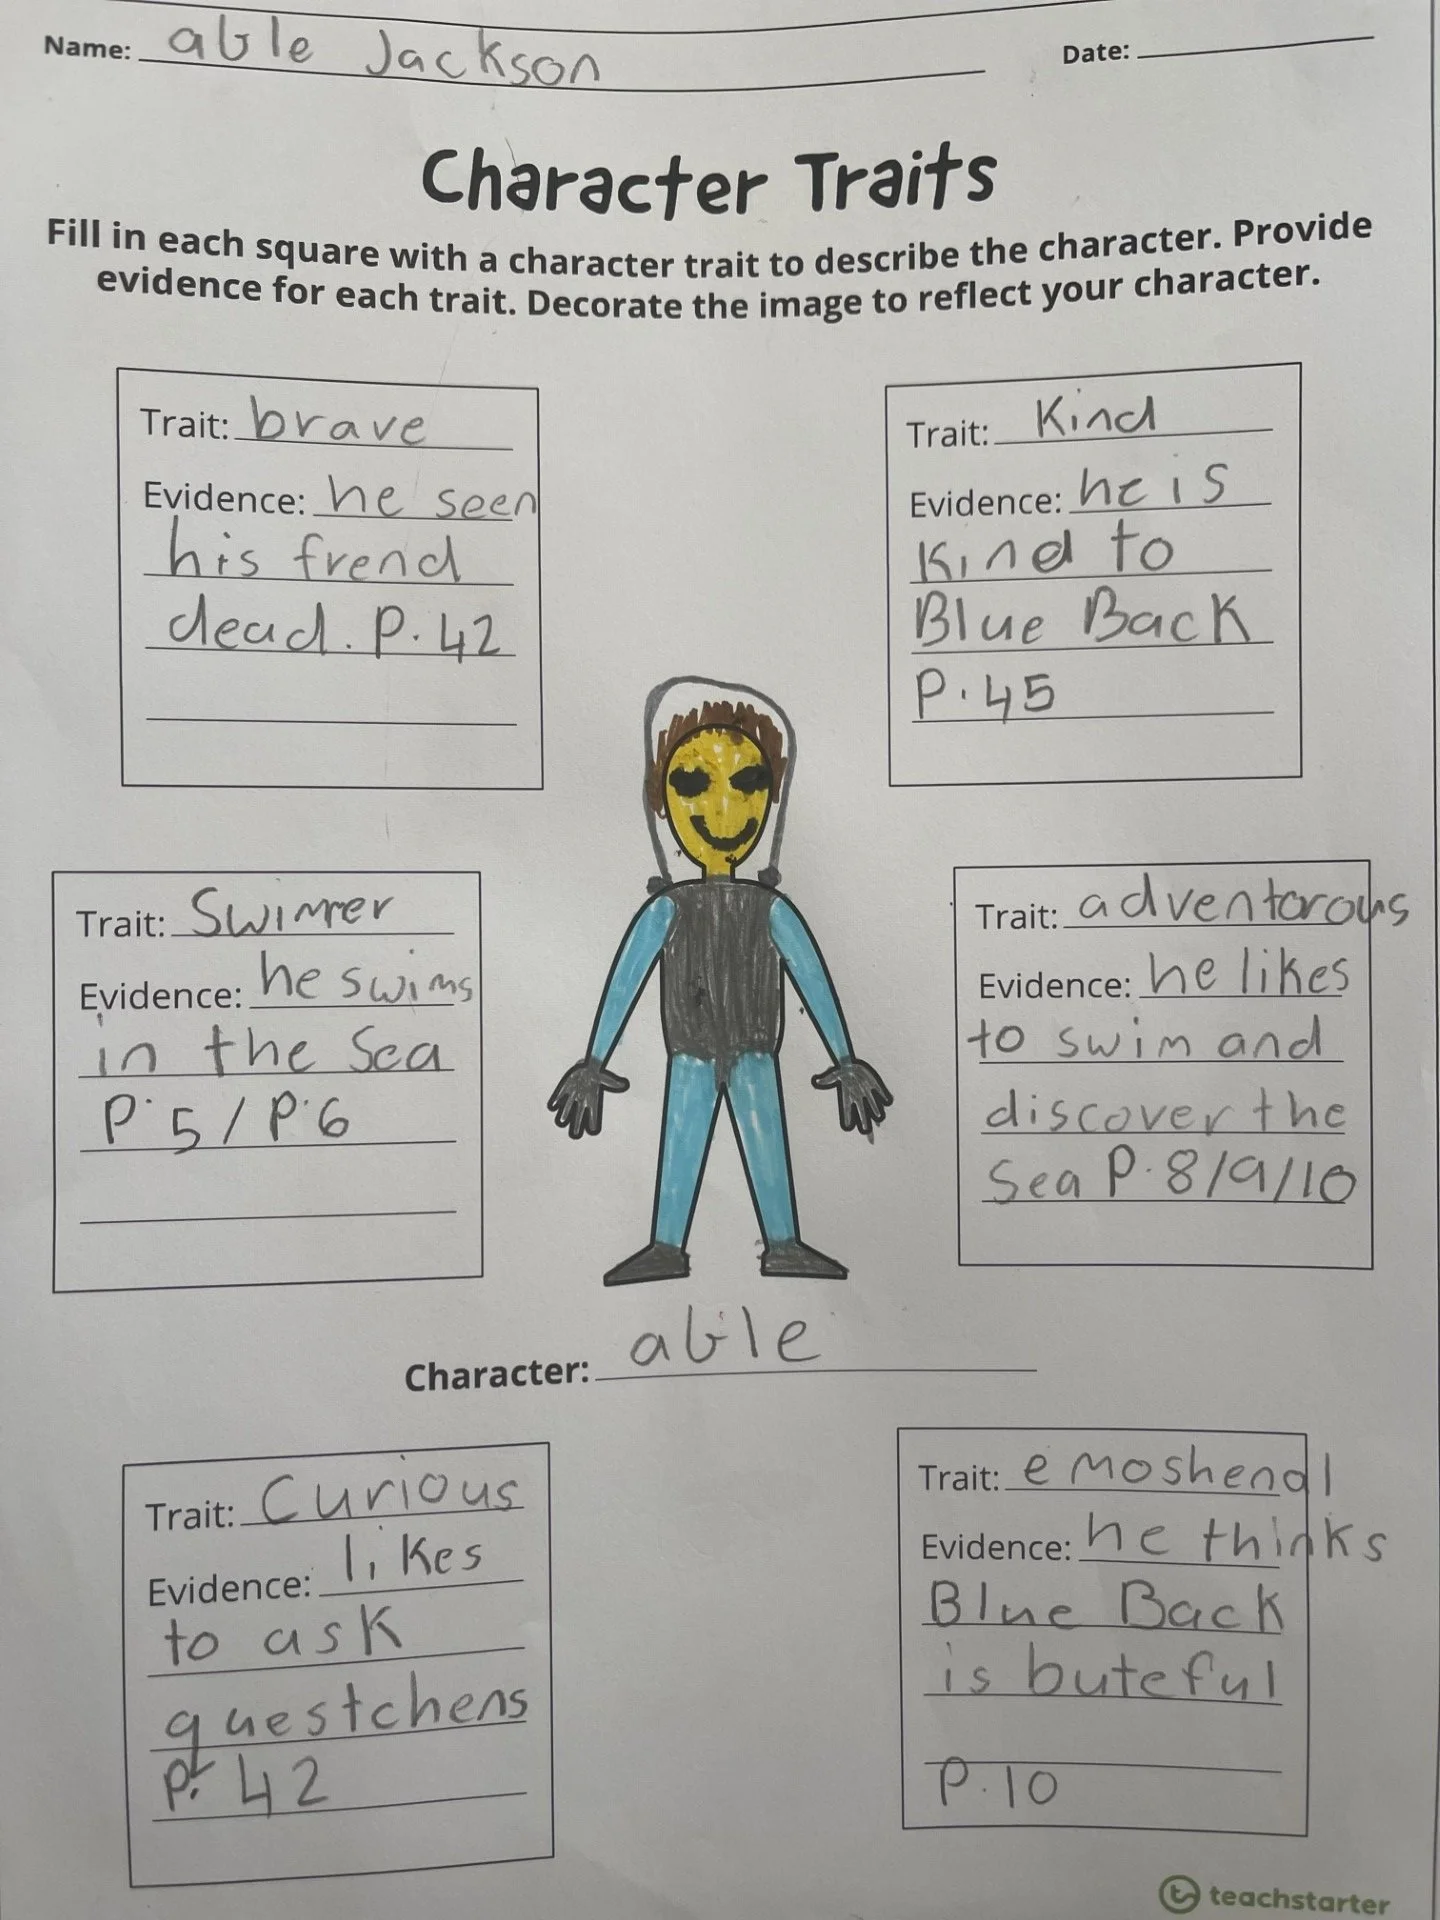 Name: able Jackson Date:
Character Traits
Fill in each square with a character trait to describe the character. Provide
evidence for each trait. Decorate the image to reflect your character.
Trait: brave
Evidence: he seen
his frend
dead. P. 42
Trait: Kind
Evidence: he is
Kind to
Blue Back
P. 45
Trait: Swimmer
Evidence: he swims
in the Sea
P. 5 / P. 6
Trait: adventorous
Evidence: he likes
to swim and
discover the
Sea P. 8/9/10
Character: able
Trait: Curious
Evidence: likes
to ask
questchens
P. 42
Trait: emoshenal
Evidence: he thinks
Blue Back
is buteful
P. 10
teachstarter